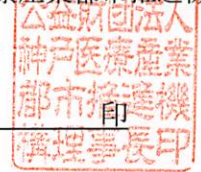 公益財団法人
神戸医療産業
都市推進機
構理事長印
印